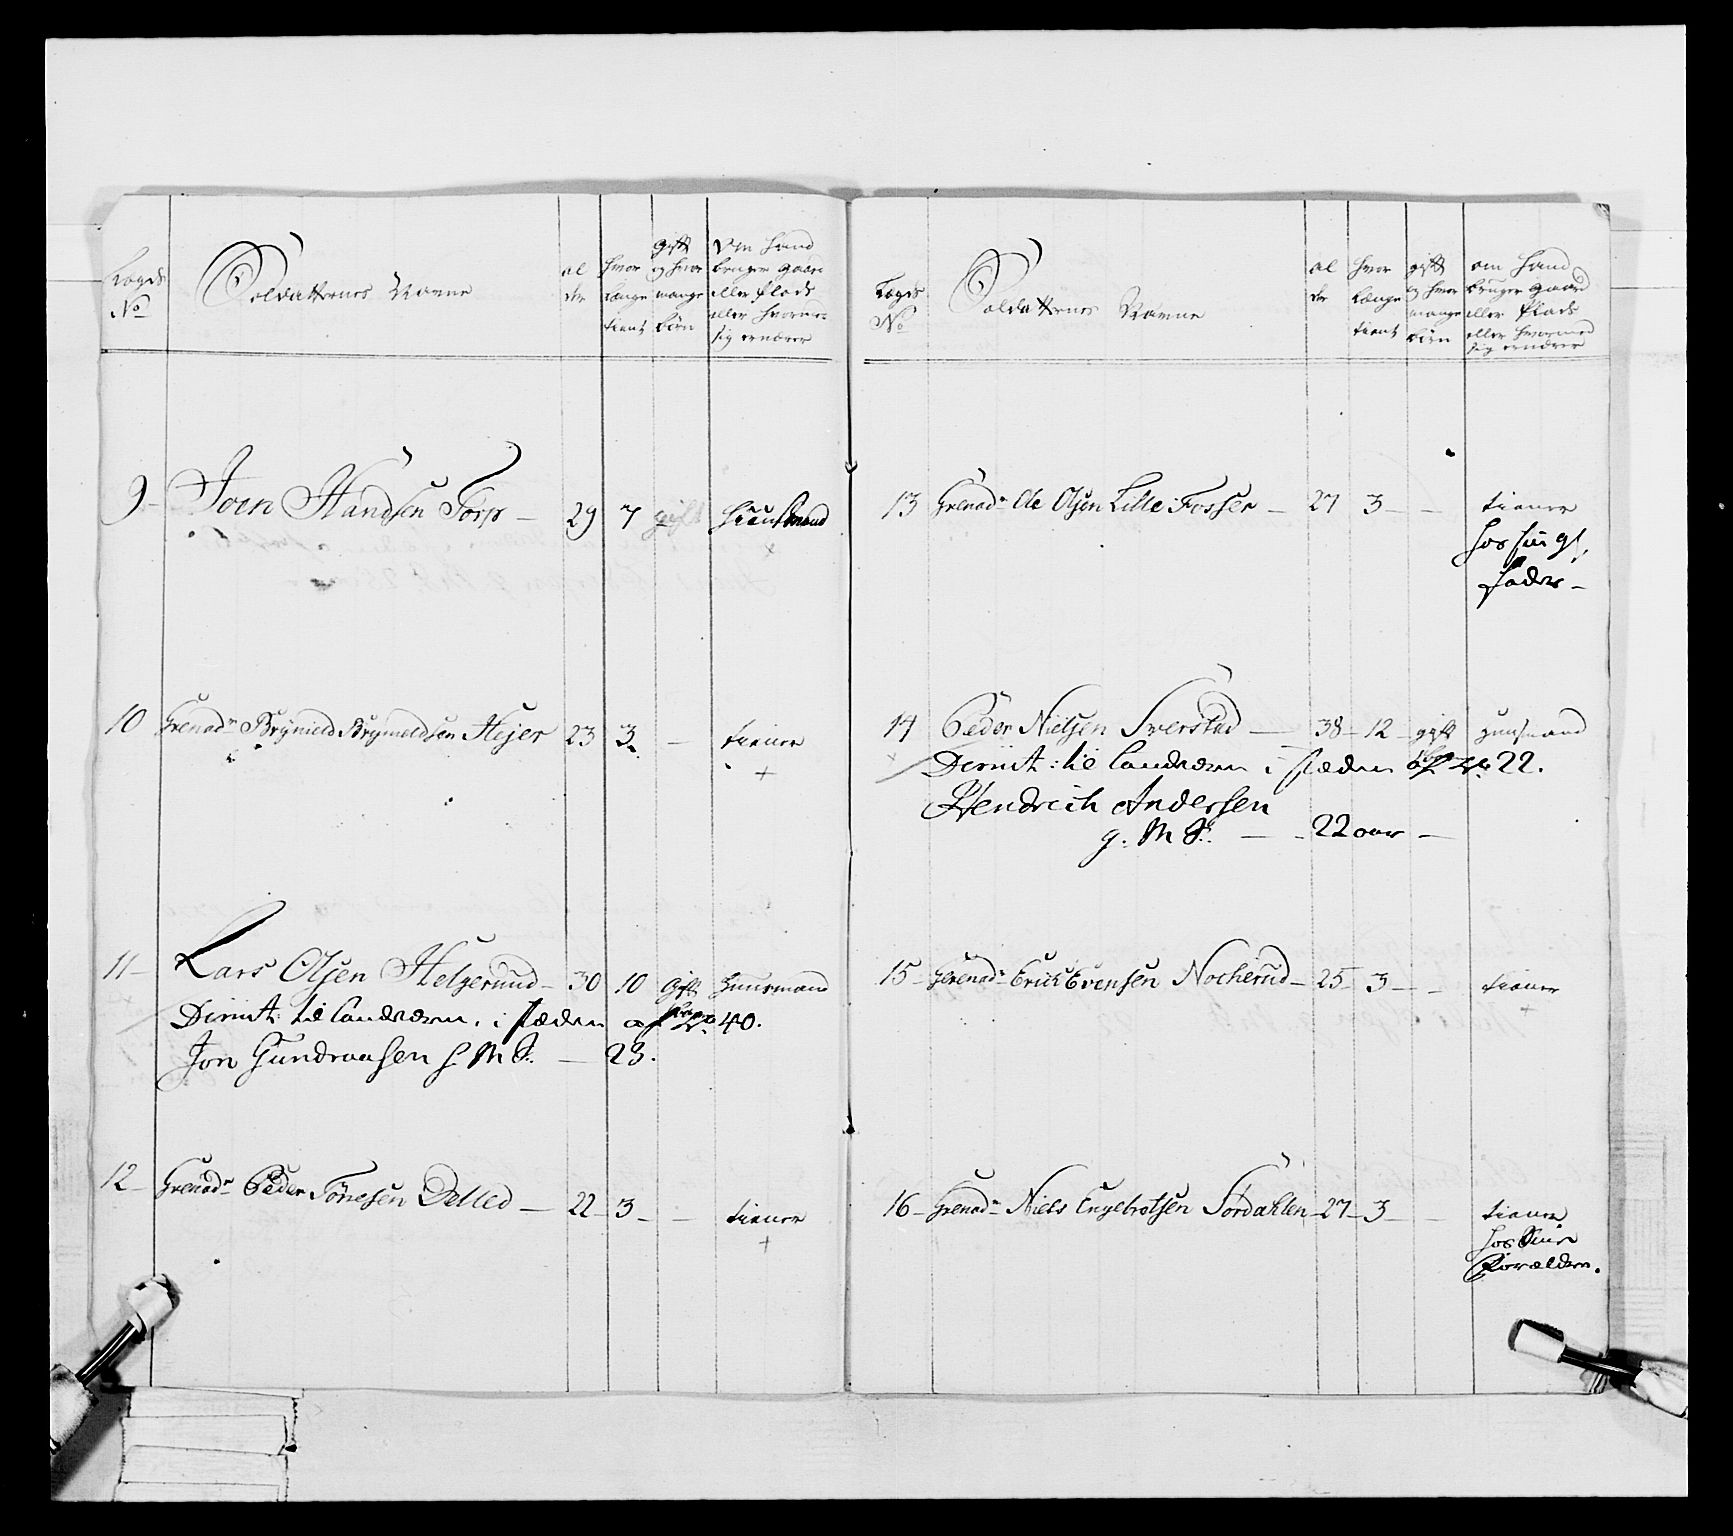 Lægds No
Soldatternes Navne
al der
hvor længe tient
gift og hvor mange börn
Om hand bruger gaard eller Plads eller hvormed sig ernærer
9 - Joen Handsen Torp - 29 7 gift Huusmand
10 Grenadr Brynield Brynieldsen Hejer 23 3 - tiener
11 - Lars Olsen Helgerund - 30 10 Gift Huusmand
Dimit: til Landværn. i stæden af No 40.
Jon Gundersen g M S. - 23.
12 - Grenadr Peder Tönesen Delled - 22 - 3 - - tiener
Lægds No
Soldatternes Navne
al der
hvor længe tient
gift og hvor mange börn
om hand bruger gaard eller Plads eller hvormed sig ernærer
13 Grenadr Ole Olsen Lille Fosser - 27 3 - - tiener
hos sin gl.
fader -
14 Peder Nielsen Sverstad - 38 - 12 - gift Huusmand
Dimit: til Landværn i stæden af No 22.
Hendrich Andersen
g. M S. - - 22 aar -
15 - Grenadr Erich Evensen Nocherud - 25 - 3 - - tiener
16 - Grenadr Niels Engebrotsen Sördahlen - 27 - 3 - - tiener
hos Sine
Forældre.